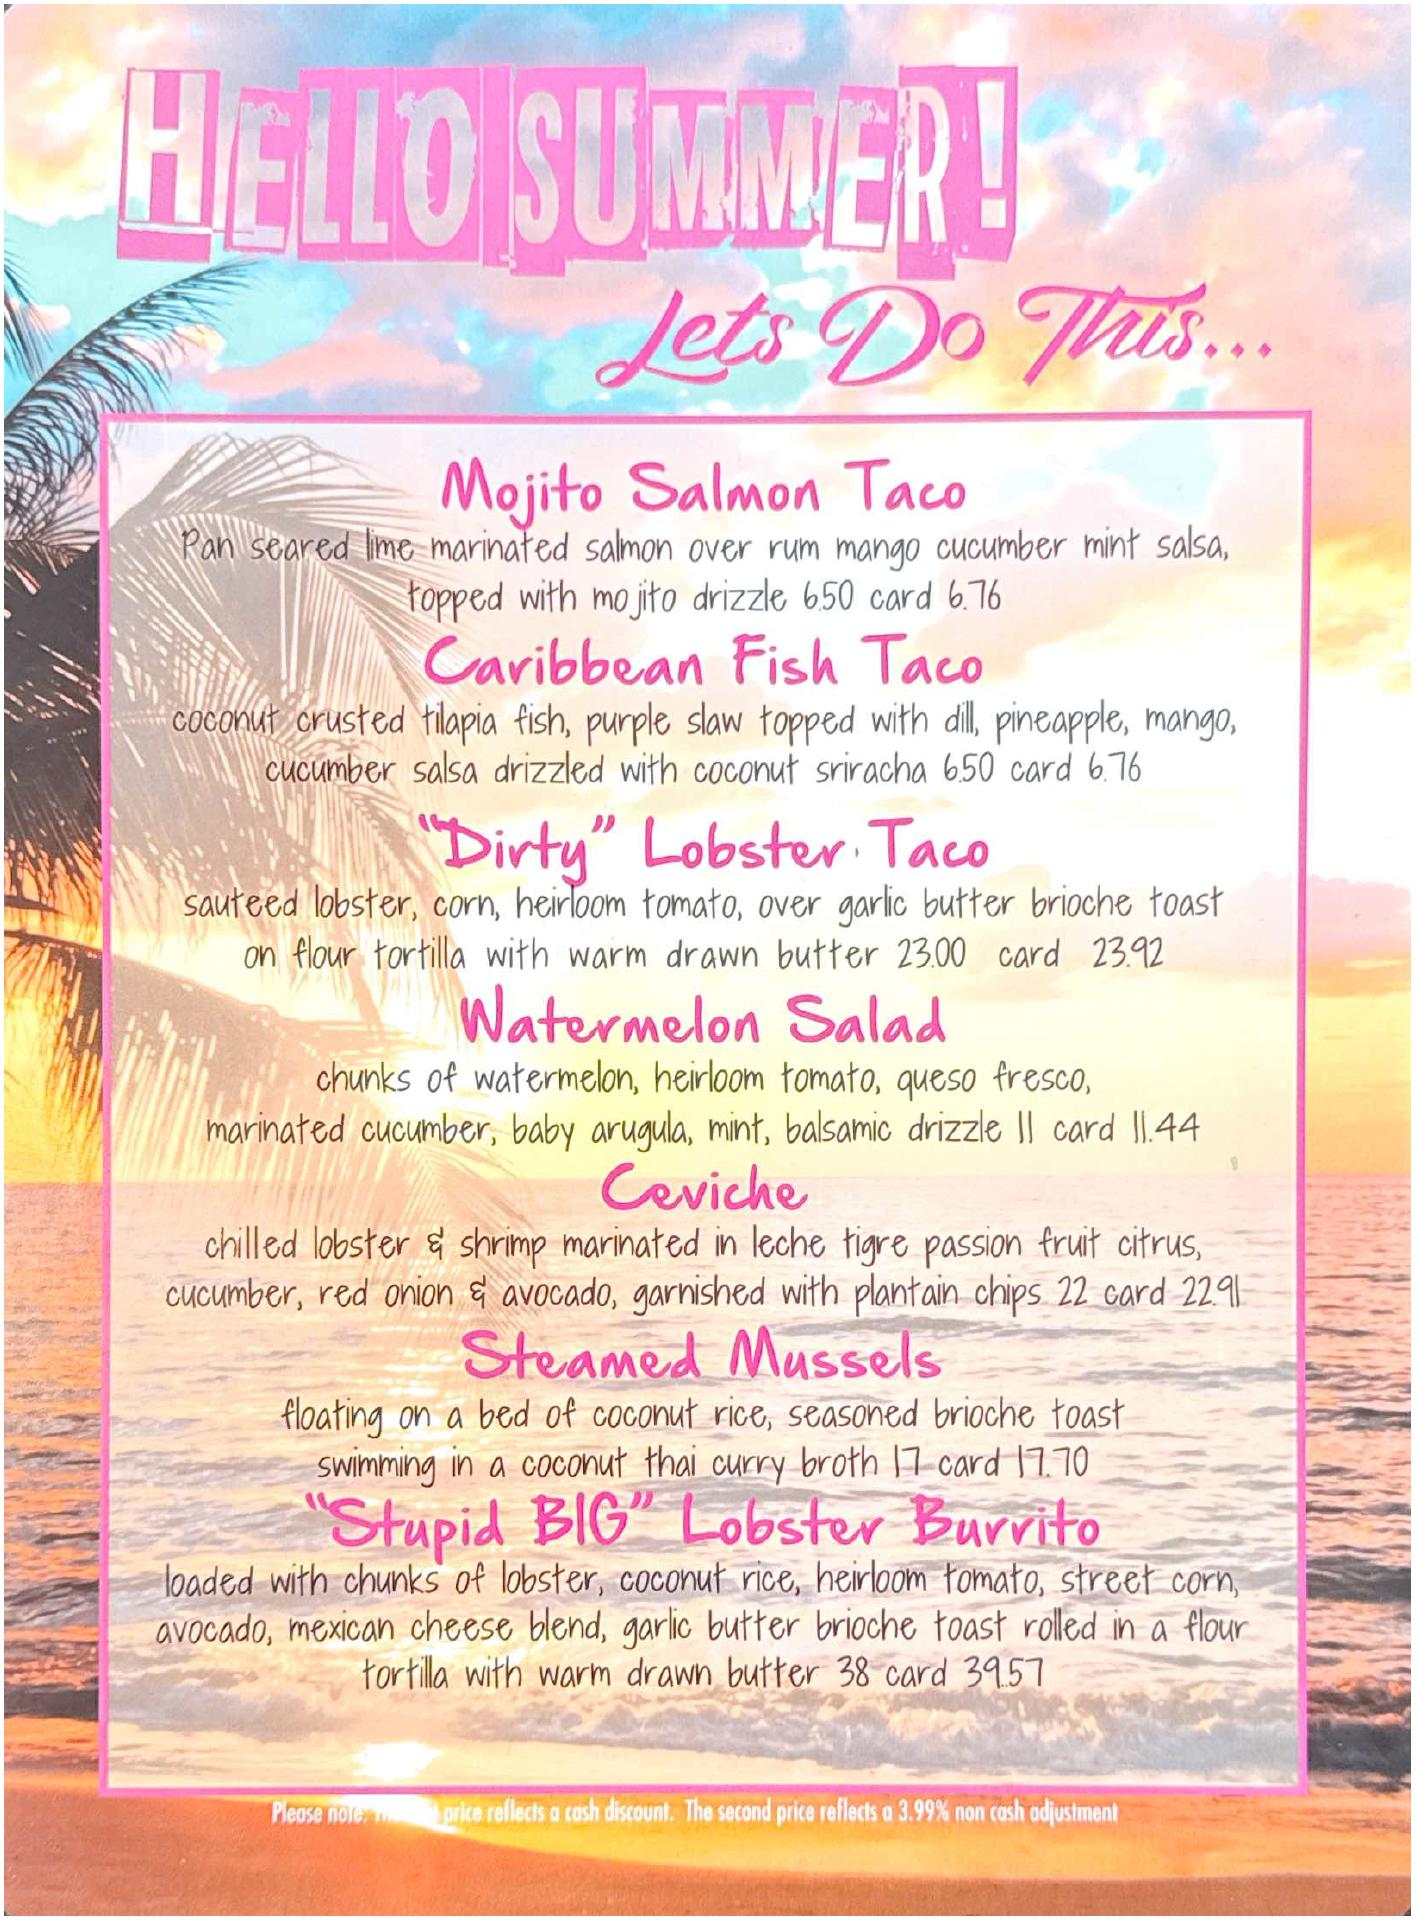 HELLO SUMMER!
Lets Do This...
Mojito Salmon Taco
Pan seared lime marinated salmon over rum mango cucumber mint salsa,
topped with mojito drizzle 6.50 card 6.76
Caribbean Fish Taco
coconut crusted tilapia fish, purple slaw topped with dill, pineapple, mango,
cucumber salsa drizzled with coconut sriracha 6.50 card 6.76
"Dirty" Lobster Taco
sauteed lobster, corn, heirloom tomato, over garlic butter brioche toast
on flour tortilla with warm drawn butter 23.00 card 23.92
Watermelon Salad
chunks of watermelon, heirloom tomato, queso fresco,
marinated cucumber, baby arugula, mint, balsamic drizzle 11 card 11.44
Ceviche
chilled lobster & shrimp marinated in leche tigre passion fruit citrus,
cucumber, red onion & avocado, garnished with plantain chips 22 card 22.91
Steamed Mussels
floating on a bed of coconut rice, seasoned brioche toast
swimming in a coconut thai curry broth 17 card 17.70
"Stupid BIG" Lobster Burrito
loaded with chunks of lobster, coconut rice, heirloom tomato, street corn,
avocado, mexican cheese blend, garlic butter brioche toast rolled in a flour
tortilla with warm drawn butter 38 card 39.57
Please note: price reflects a cash discount. The second price reflects a 3.99% non cash adjustment